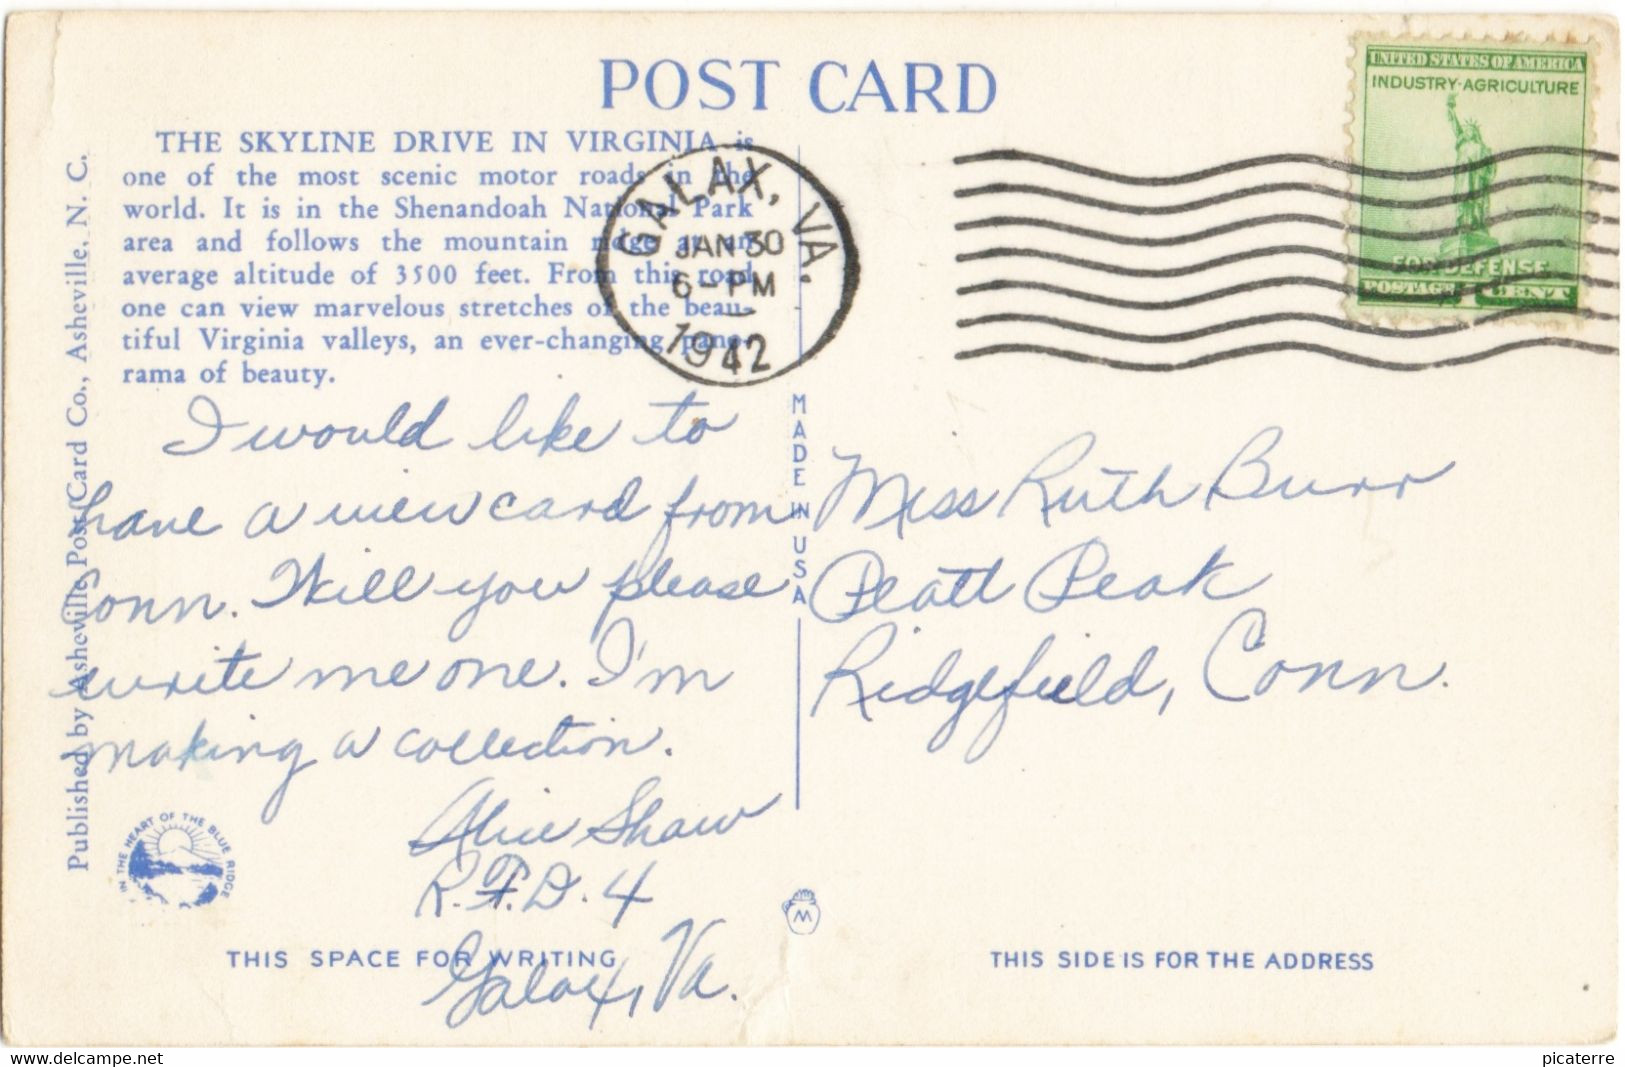 POST CARD
UNITED STATES OF AMERICA
INDUSTRY-AGRICULTURE
FOR DEFENSE
POSTAGE 1 CENT
THE SKYLINE DRIVE IN VIRGINIA is
one of the most scenic motor roads in the
world. It is in the Shenandoah National Park
area and follows the mountain ridge at an
average altitude of 3500 feet. From this road
one can view marvelous stretches of the beau-
tiful Virginia valleys, an ever-changing pano-
rama of beauty.
GALAX, VA.
JAN 30
6-PM
1942
Published by Asheville Post Card Co., Asheville, N. C.
I would like to
have a view card from
Conn. Will you please
write me one. I'm
making a collection.
Alice Shaw
R.F.D. 4
Galax, Va.
MADE IN USA
Miss Ruth Burr
Peatt Peak
Ridgefield, Conn.
IN THE HEART OF THE BLUE RIDGE
W
THIS SPACE FOR WRITING
THIS SIDE IS FOR THE ADDRESS
www.delcampe.net
picaterre